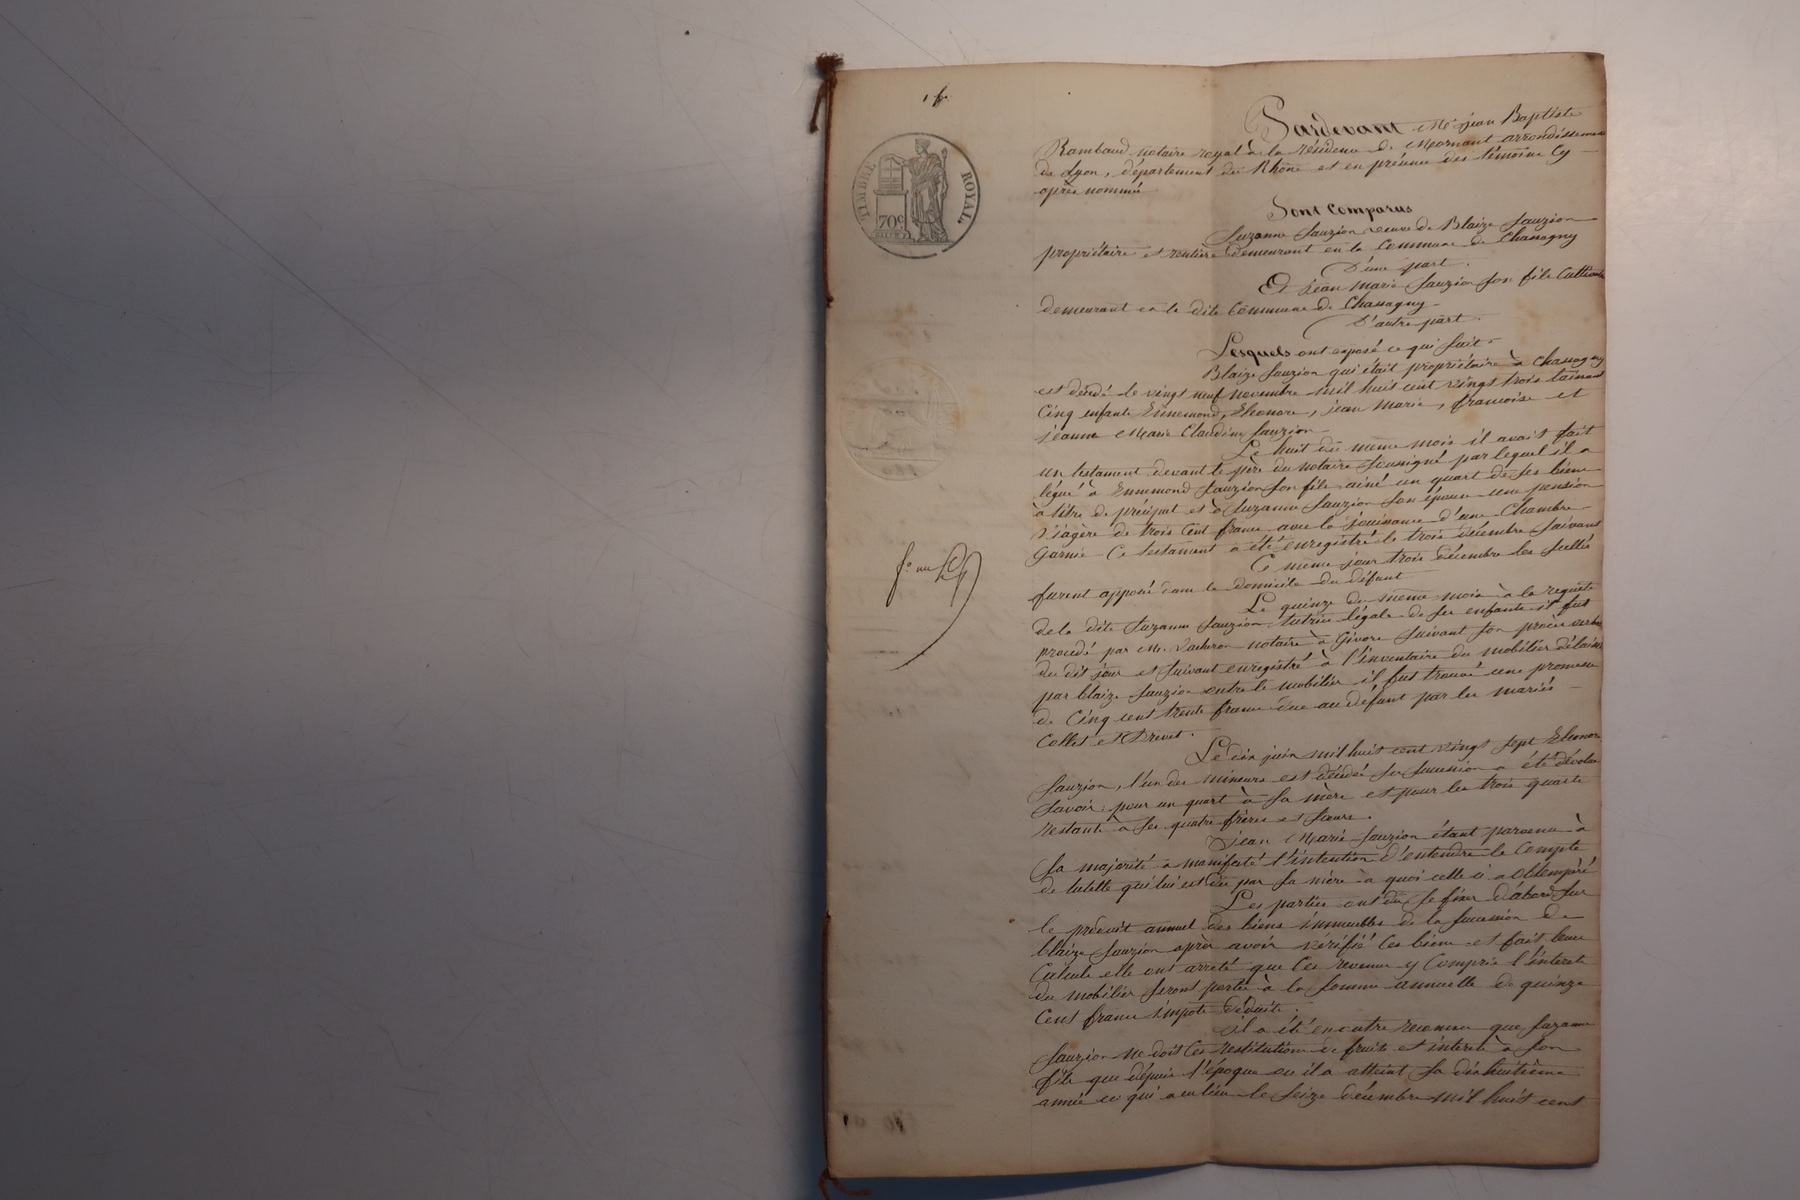 1 fr
TIMBRE ROYAL
70c
fo. un
Pardevant Me jean Baptiste
Rambaud notaire royal à la résidence de Mornant arrondissement
de Lyon, département du Rhône et en présence des témoins Cy
après nommés
Sont Comparus
Suzanne Sauzion veuve de Blaize Sauzion
propriétaire et rentière demeurant en la Commune de Chassagny
D'une part.
Et jean marie Sauzion son fils Cultivateur
demeurant en la dite Commune de Chassagny
D'autre part.
Lesquels ont exposé ce qui suit
Blaize Sauzion qui était propriétaire à Chassagny
est décédé le vingt neuf novembre mil huit cent vingt trois laissant
Cinq enfants Ennemond, Eleonore, jean Marie, francoise et
jeanne Marie Claudine Sauzion
Le huit du même mois il avait fait
un testament devant le père du notaire soussigné par lequel il a
légué à Ennemond Sauzion son fils ainé un quart de ses biens
à titre de préciput et à Suzanne Sauzion son épouse une pension
viagère de trois Cent francs avec la jouissance d'une Chambre
Garnie Ce testament a été enregistré le trois décembre suivant
Ce même jour trois décembre les scellés
furent apposés dans le domicile du défunt
Le quinze du même mois à la requête
de la dite Suzanne Sauzion tutrice légale de ses enfants il fut
procédé par Me notaire à Givors suivant son procès verbal
du dit jour et suivant enregistré à l'inventaire du mobilier délaissé
par blaize Sauzion entre le mobilier il fut trouvé une promesse
de Cinq cent trente francs due au défunt par les mariés
Collet et Drevet.
Le dix juin mil huit cent vingt sept Eleonore
Sauzion, l'un des mineurs est décédé sa succession a été dévolue
Savoir: pour un quart à sa mère et pour les trois quarts
restants à ses quatre frères et sœurs.
jean Marie Sauzion étant parvenu à
sa majorité a manifesté l'intention d'entendre le Compte
de tutelle qui lui est du par sa mère à quoi celle ci a obtempéré
Les parties ont du se fixer d'abord sur
le produit annuel des biens immeubles de la succession de
blaize Sauzion après avoir vérifié Ces biens et fait leurs
Calculs elle ont arreté que Ces revenus y Compris l'intérêt
du mobilier seront portés à la somme annuelle de quinze
Cent francs impots déduits.
il a été en outre reconnu que Suzanne
Sauzion ne doit Ces restitutions de fruits et intérêts à son
fils que depuis l'époque ou il a atteint sa dixhuitième
année ce qui a eu lieu le seize décembre mil huit cent